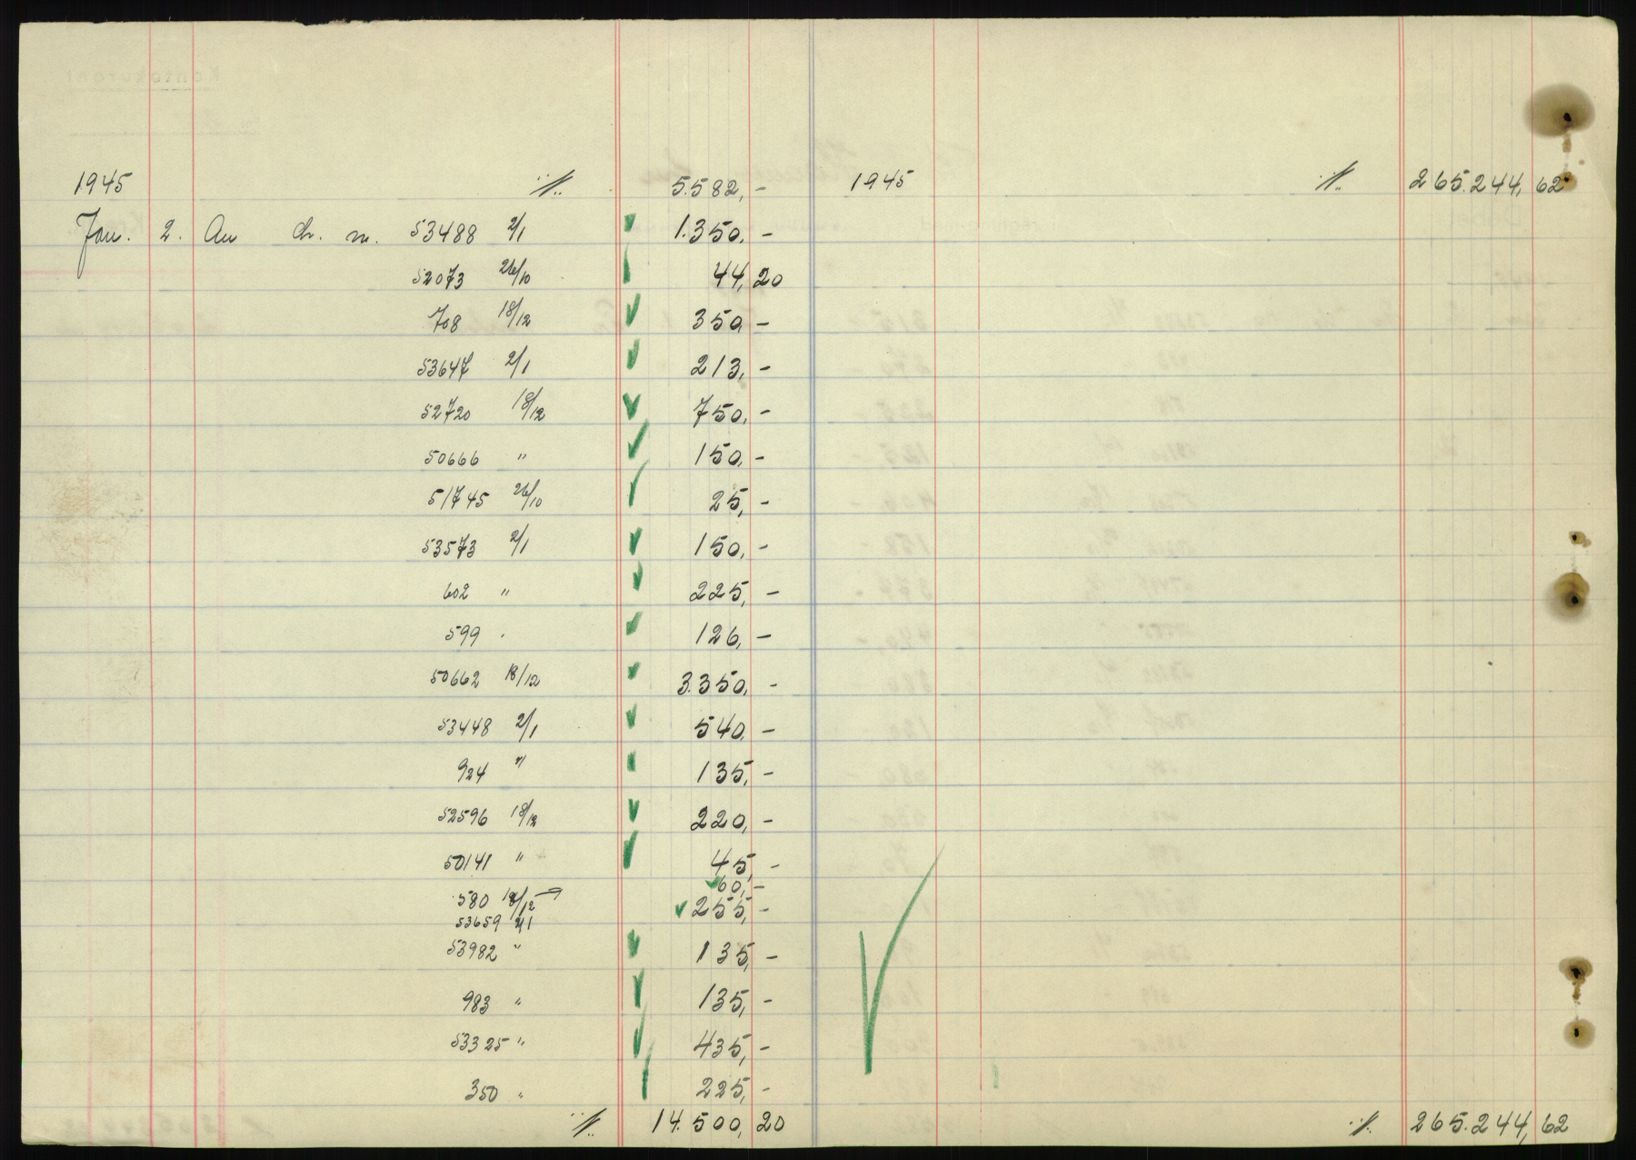 1945 ·/. 5.582,- 1945 ·/. 265.244,62
Jan. 2. An ch. nr. 53488 2/1 1.350,-
52073 26/10 44,20
708 18/12 350,-
53647 2/1 213,-
52720 18/12 750,-
50666 " 150,-
51745 26/10 25,-
53573 2/1 150,-
602 " 225,-
599 · 126,-
50662 18/12 3.350,-
53448 2/1 540,-
924 " 135,-
52596 18/12 220,-
50141 " 45,-
580 18/12 60,-
53659 2/1 255,-
53982 " 135,-
983 " 135,-
53325 " 435,-
350 " 225,-
·/. 14.500,20 ·/. 265.244,62